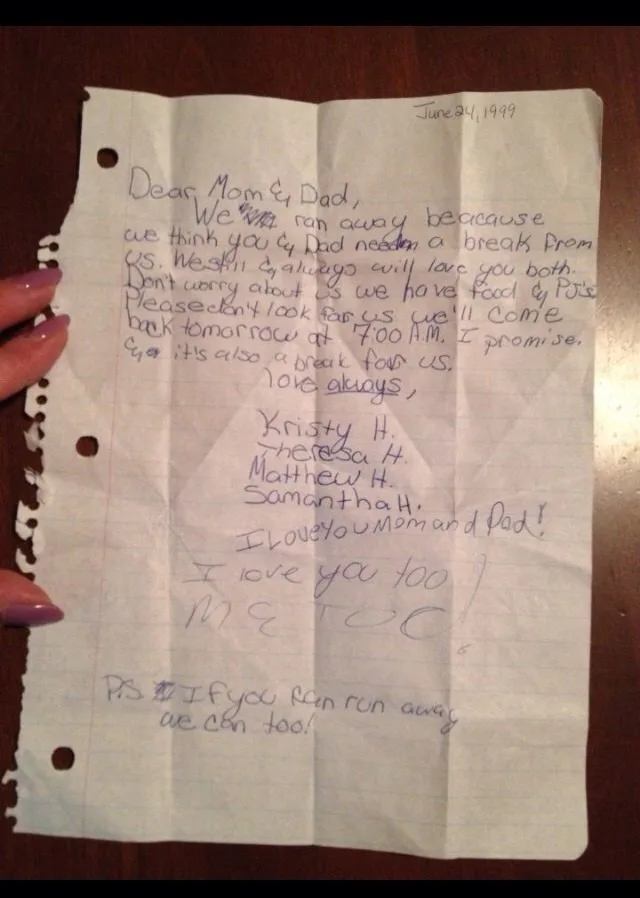 June 24, 1999
Dear Mom & Dad,
We ran away beacause
we think you & Dad need a break from
us. We still & always will love you both.
Don't worry about us we have food & PJ's
Please don't look for us we'll come
back tomorrow at 7:00 A.M. I promise.
& it's also a break for us.
love always,
Kristy H.
Theresa H.
Matthew H.
Samantha H.
I Love You Mom and Dad!
I love you too!
ME TOO!
P.S If you can run away
we can too!